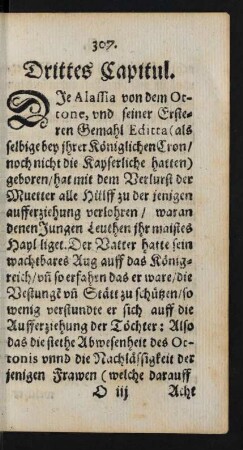 307.
Drittes Capitul.
DJe Alassia von dem Ot-
tone, vnd seiner Erste-
ren Gemahl Editta (als
selbige bey jhrer Königlichen Cron/
noch nicht die Kayserliche hatten)
geboren/ hat mit dem Verlurst der
Muetter alle Hülff zu der jenigen
aufferziehung verlohren/ waran
denen Jungen Leuthen jhr maistes
Hayl liget. Der Vatter hatte sein
wachtbares Aug auff das König-
reich/ vñ so erfahrn das er ware/ die
Vestungẽ vñ Stätt zu schützen/ so
wenig verstundte er sich auff die
Aufferziehung der Töchter: Also
das die stethe Abwesenheit des Ot-
tonis vnnd die Nachlässigkeit der
jenigen Frawen (welche darauff
O iij Acht